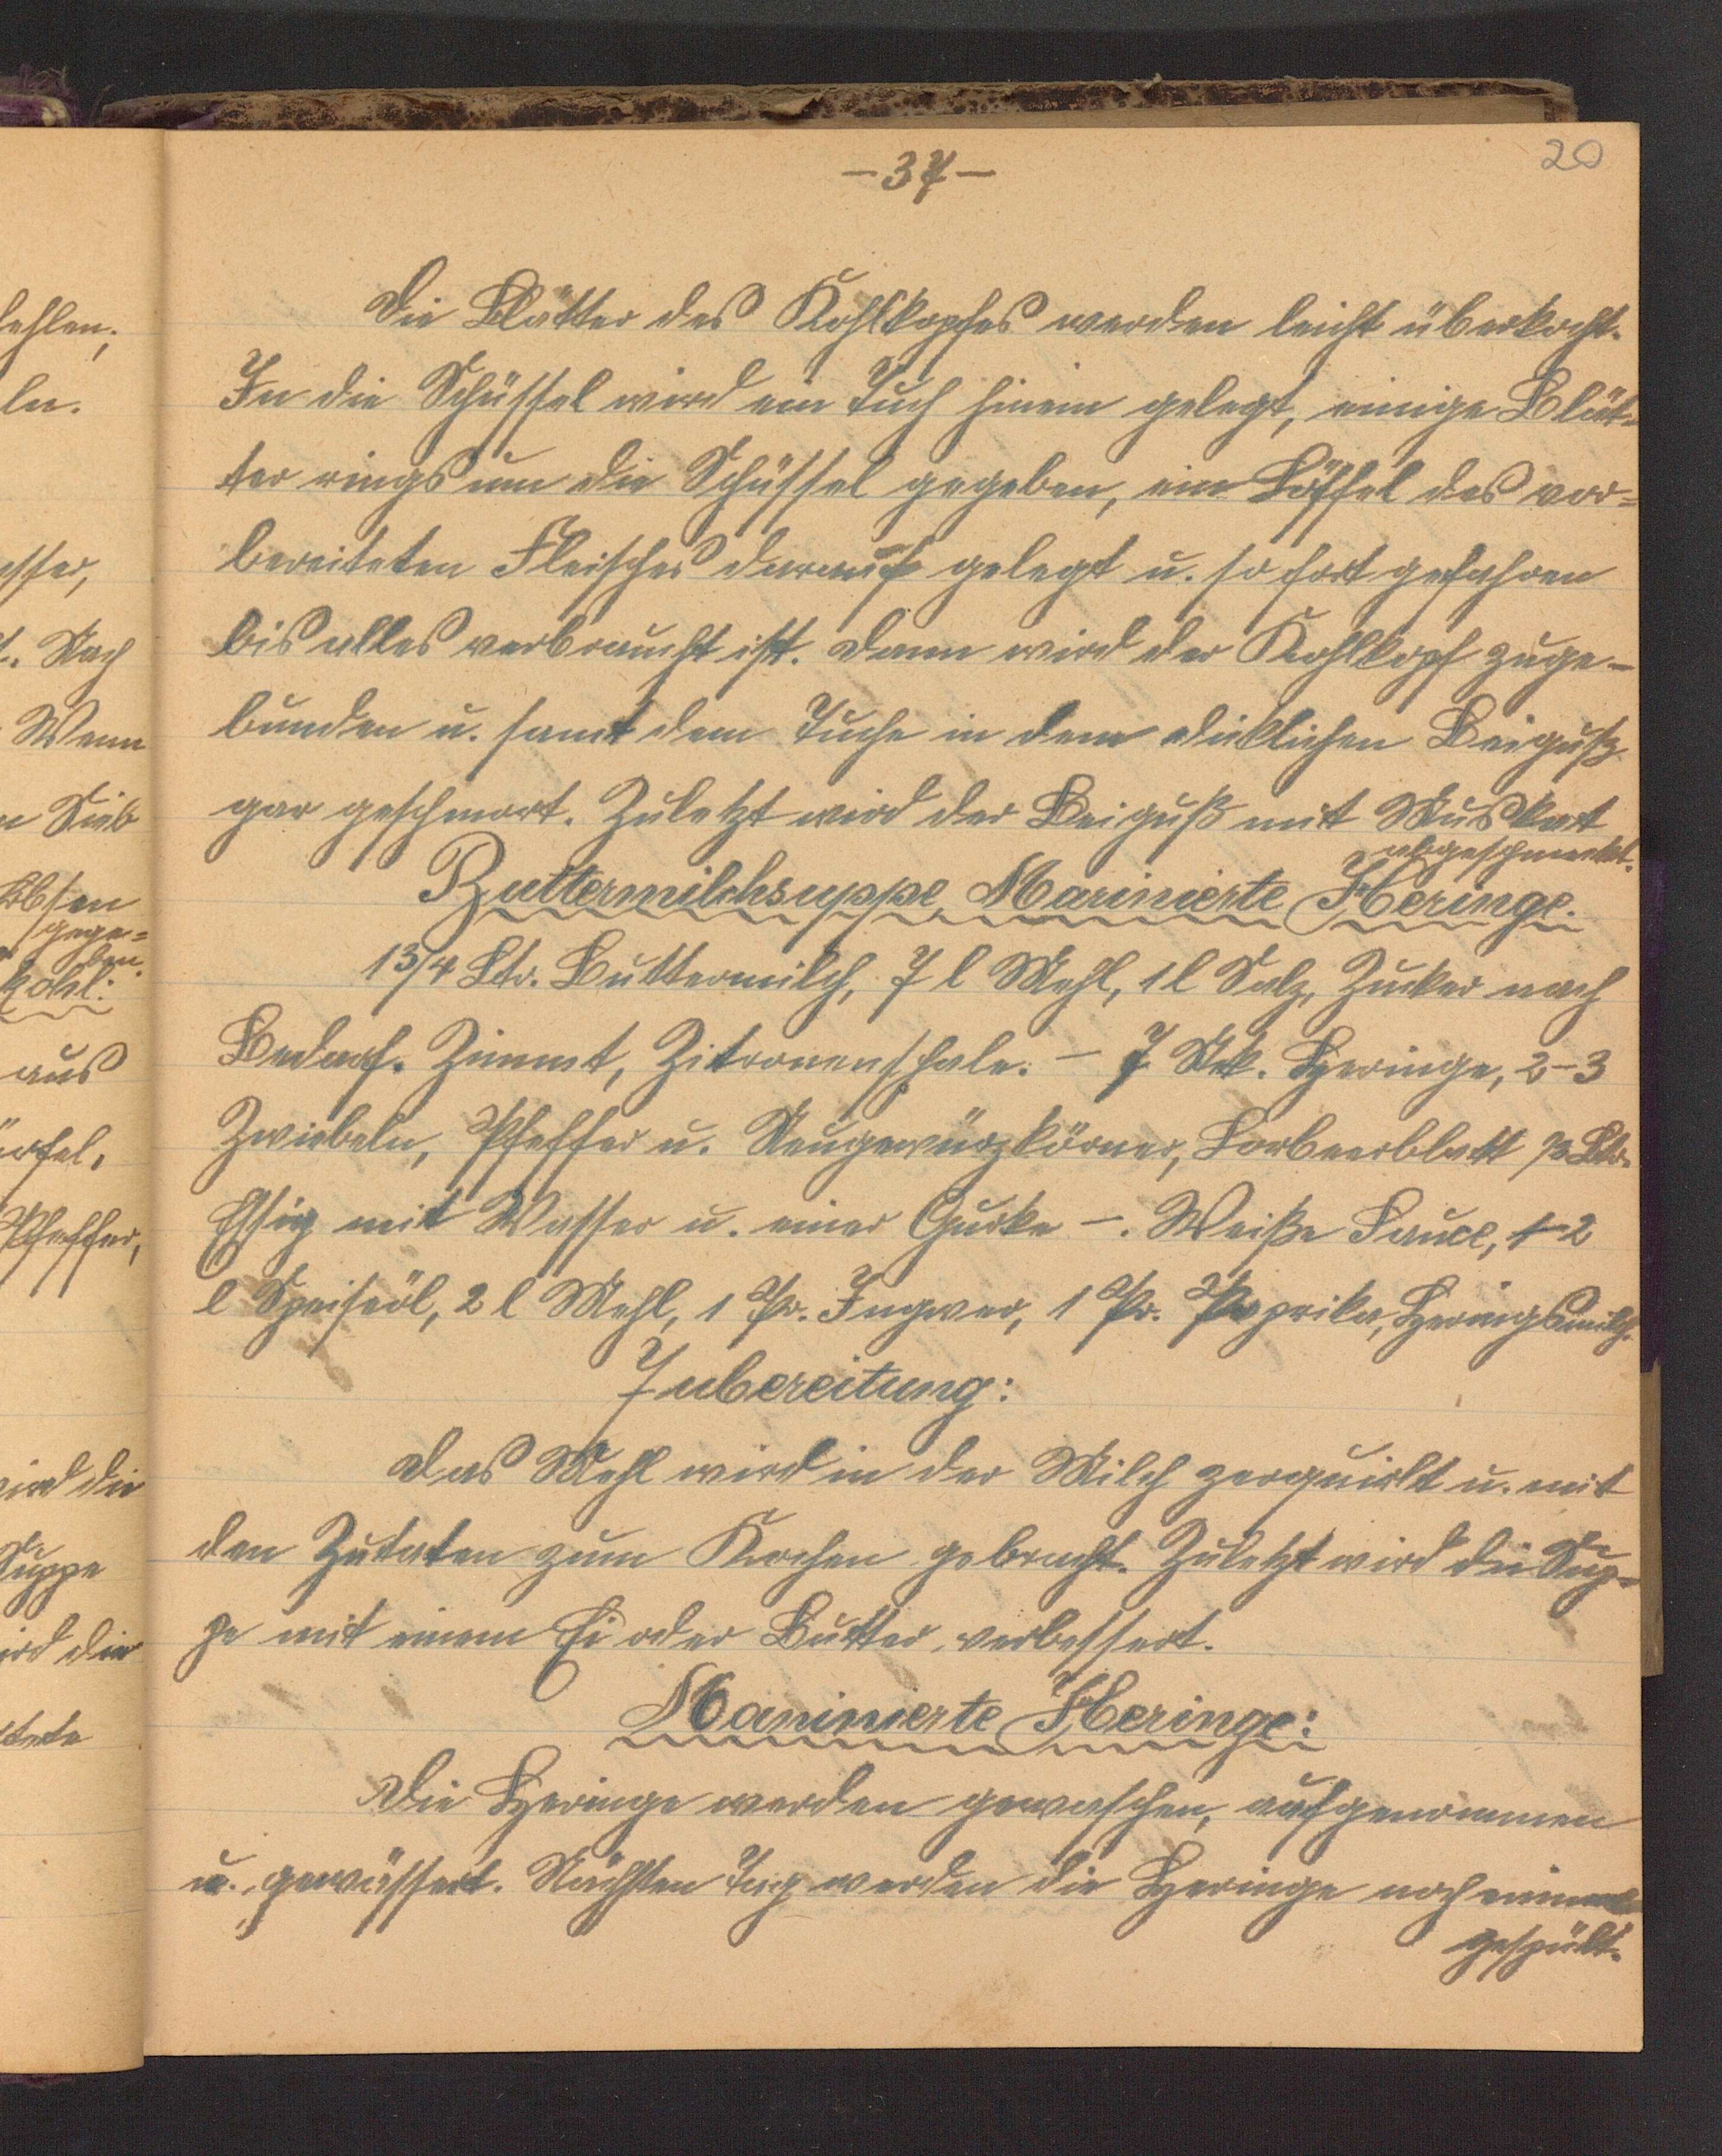 20
-37-
Die Blätter des Kohlkopfes werden leicht überkocht.
In die Schüssel wird ein Tuch hinein gelegt, einige Blät=
ter rings um die Schüssel gegeben, ein Löffel des vor=
bereiteten Fleisches darauf gelegt u. so fort gefahren
bis alles verbraucht ist. Dann wird der Kohlkopf zuge-
bunden u. samt dem Tuche in dem dicklichen Beiguß
gar geschmort. Zuletzt wird der Beiguß mit Muskat
abgeschmeckt.
Buttermilchsuppe, Marinierte Heringe.
1 3/4 Ltr. Buttermilch, 7 l Mehl, 1 l Salz, Zucker nach
Bedarf. Zimmt, Zitronenschale. - 7 Stck. Heringe, 2-3
Zwiebeln, Pfeffer u. Neugewürzkörner, Lorbeerblatt Ltr.
Essig mit Wasser u. einer Gurke -. Weiße Sauce, 1-2
l Speiseöl, 2 l Mehl, 1 Pr. Ingwer, 1 Pr. Paprika, Heringsmilch.
Zubereitung:
Das Mehl wird in der Milch zerquirlt u. mit
den Zutaten zum Kochen gebracht. Zuletzt wird die Sup=
pe mit einem Ei oder Butter verbessert.
Marinierte Heringe:
Die Heringe werden gewaschen, aufgenommen
u. gewässert. Nächsten Tag werden die Heringe noch einmal
gespült.
ln.
Nach
Wenn
Sieb
gege=
ben.
kohl:
aus
Pfeffer,
wird die
Suppe
die